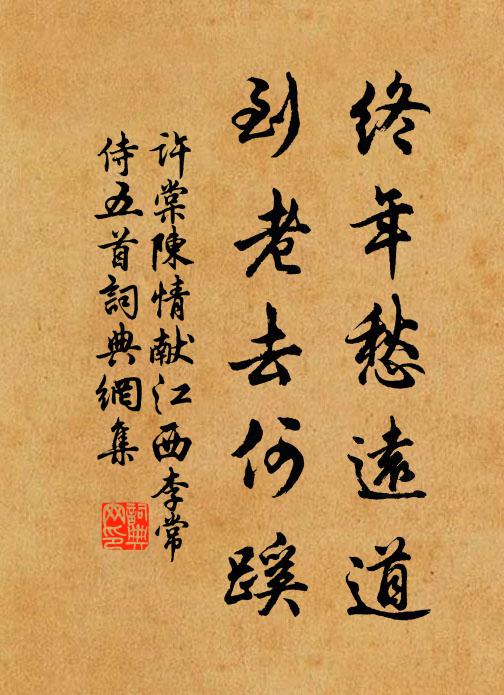 終年愁遠道
到老去何蹊
許棠陳情献江西李常
侍五首詞典網集
詞典
网印